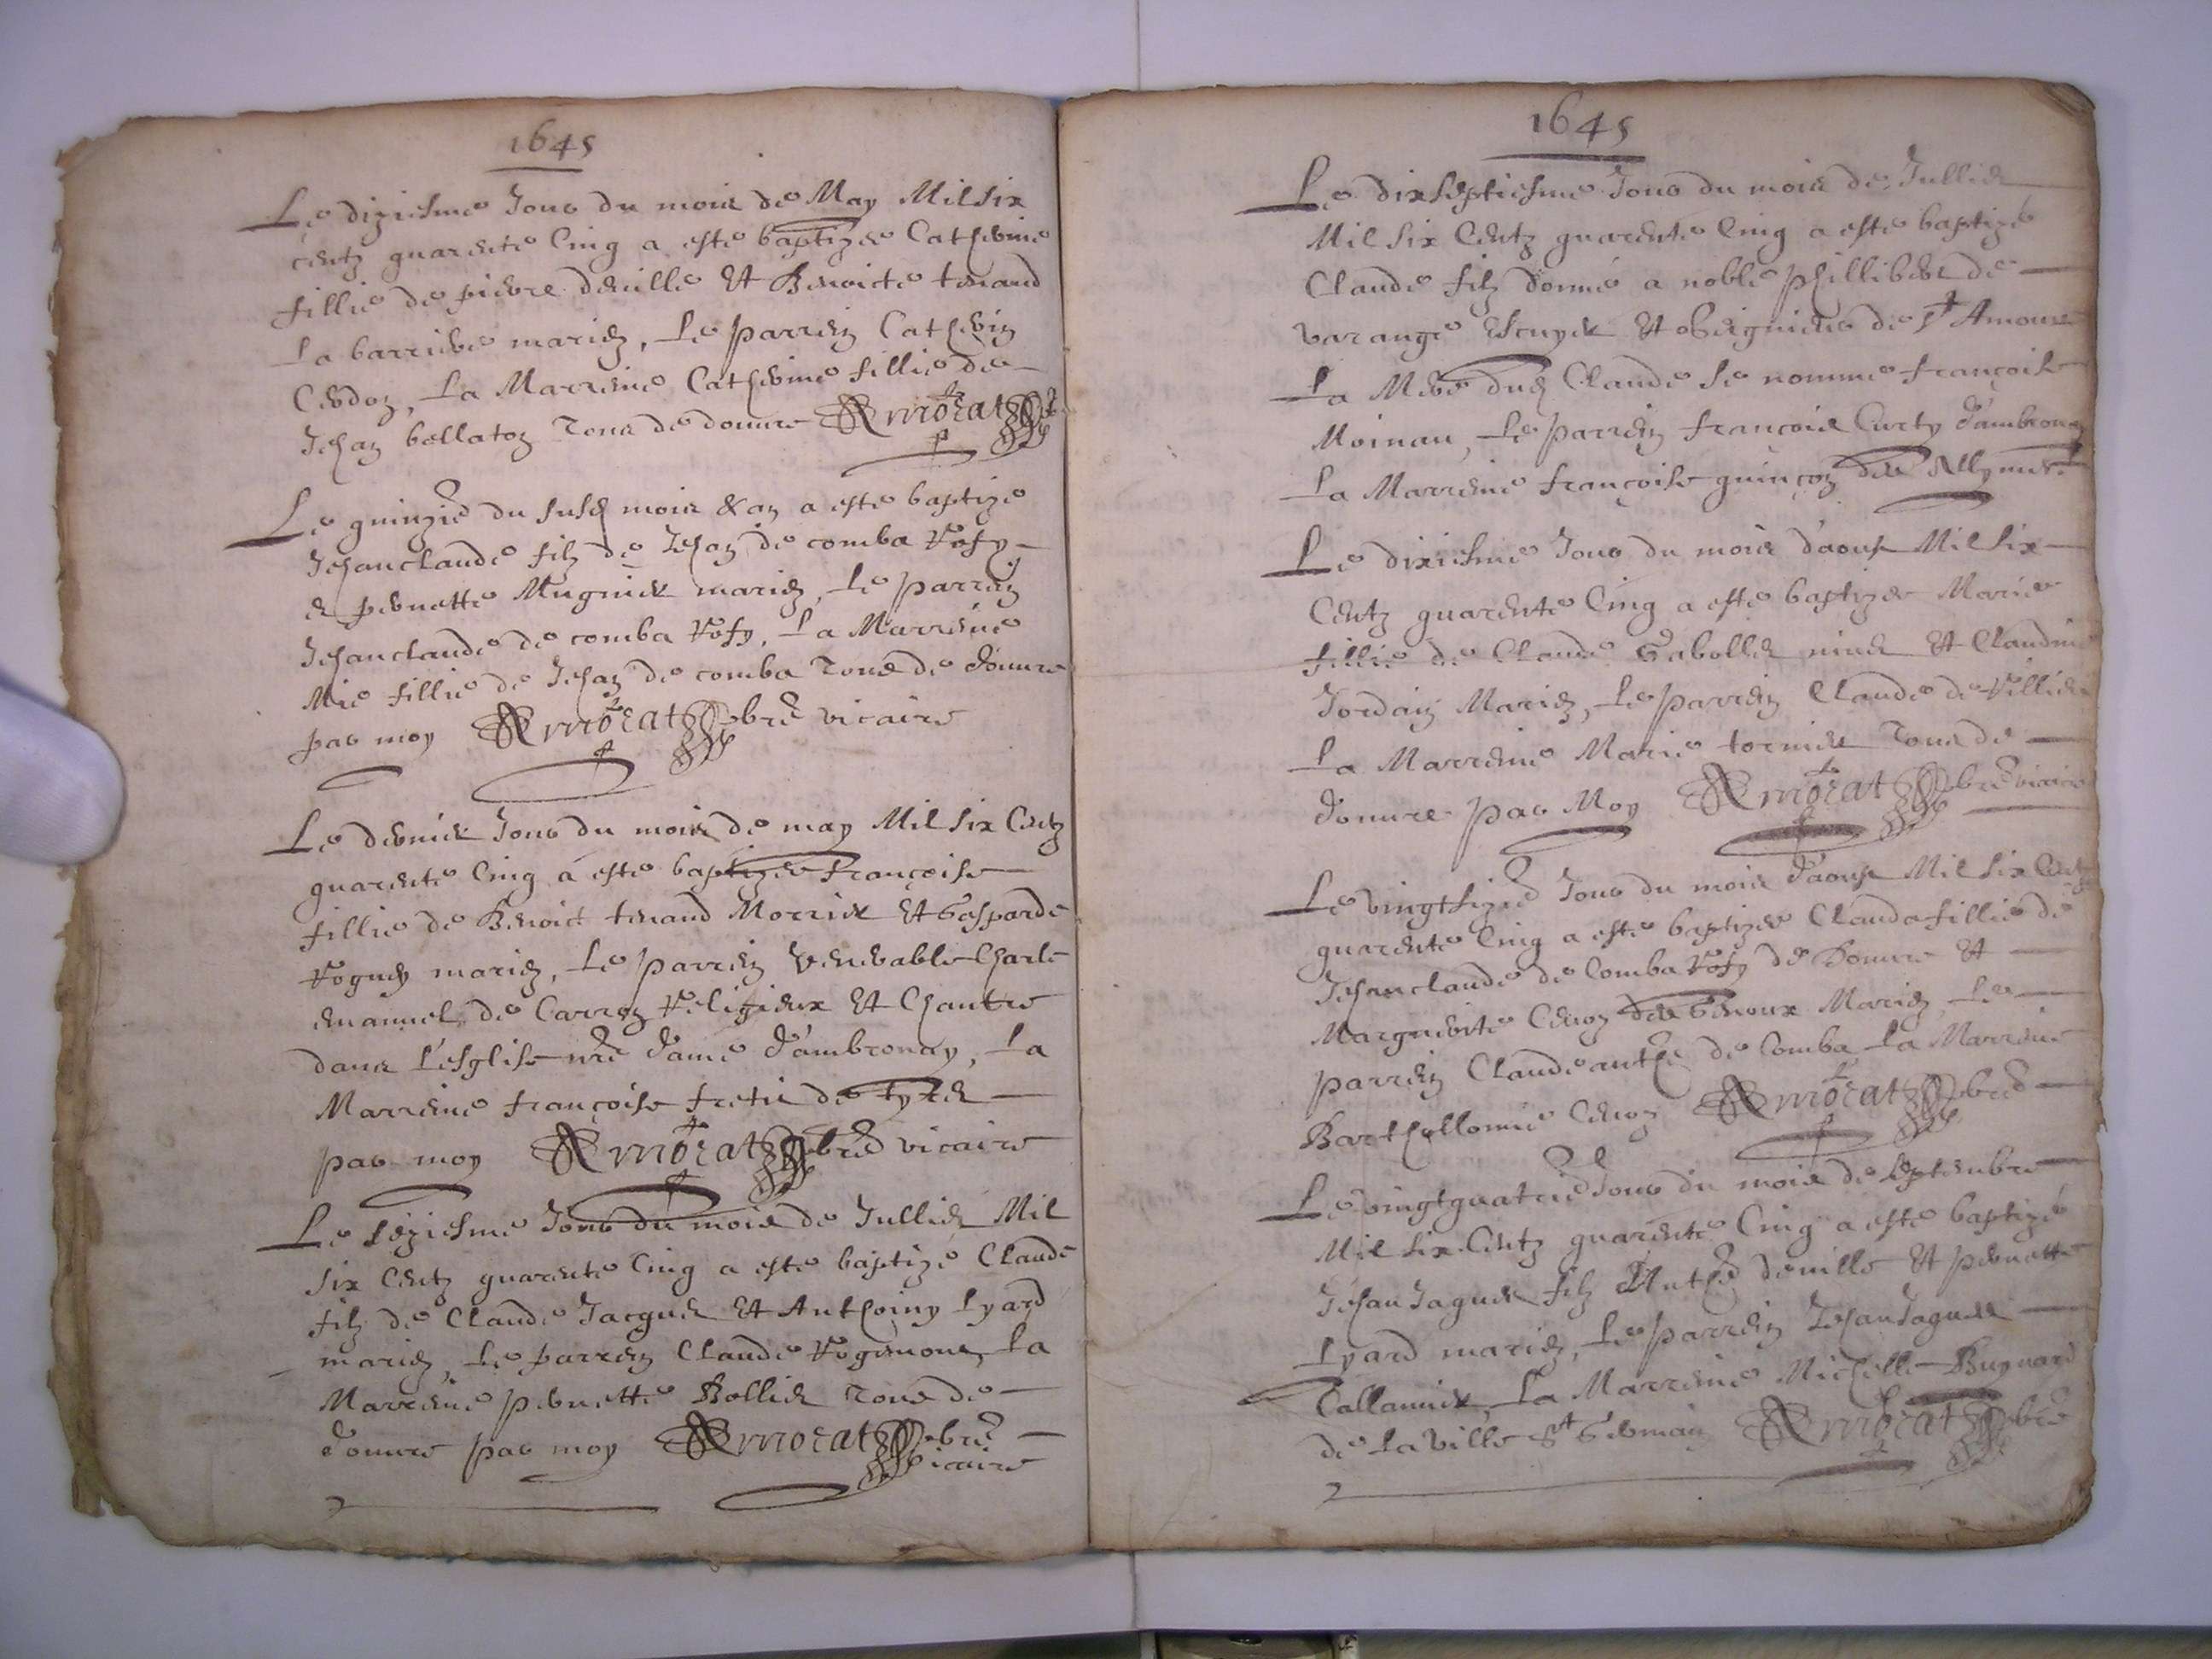 1645
Le diziesme Jour du mois de May Mil six
centz quarente Cinq a este baptizee Catherine
fillie de pierre deuille Et Benoicte tenand
La barriere mariez, Le parrein Catherin
Cerdon, La Marreine Catherine fillie de
Jehan bellaton Tous de douure AMorat pbre
Le quinzie du susd mois & an a este baptize
Jehanclaude filz de Jehan de comba Rosy
& pernette Mugnier mariez, Le parrein
Jehanclaude de comba Rosy, La Marreine
Mie fillie de Jehan de comba Tous de douure
par moy AMorat pbre vicaire
Le dernier Jour du mois de may Mil six Centz
quarente Cinq a este baptizee Françoise
fillie de Benoict tenand Morrier Et Gasparde
Roguey mariez, Le parrein Venerable Charle
emanuel de Carron Religieux Et Chantre
dans L'esglise nre dame d'ambronay, La
Marreine françoise fretis de
par moy AMorat pbre vicaire
Le seziesme Jour du mois de Jullien Mil
six Centz quarente Cinq a este baptizé Claude
filz de Claude Jacques Et Anthoiny Lyard
mariez, Le parrein Claude Rogemont La
Marreine pernette Bollier Tous de
douure par moy AMorat pbre
vicaire
1645
Le dixseptiesme Jour du mois de Jullien
Mil six Centz quarente Cinq a este baptizé
Claude filz donné a noble phillibert de
varange Escuyer Et seigneur de St Amour
La Mere dud Claude se nomme françoise
Moinau, Le parrein françois Curty d'ambronay
La Marreine françoise guinçon de
Le dixiesme Jour du mois d'aoust Mil six
Centz quarente Cinq a este baptizee Marie
fillie de Claude Et Claudine
Jordain Mariez, Le parrein Claude de Villie
La Marreine Marie tornier Tous de
douure par Moy AMorat pbre vicaire
Le vingtsizie Jour du mois d'aoust Mil six Centz
quarente Cinq a este baptizee Clauda fillie de
Jehanclaude de Comba Rosy de Douure Et
Marguerite Cenoz Mariez Le
parrein Claudeanthe de Comba La Marreine
Barthollomie Cenoz AMorat pbre
Le vingtquatrie Jour du mois de septembre
Mil six Centz quarente Cinq a este baptizé
Jehan Jaques filz Anthe deuille Et pernette
Lyard mariez, Le parrein Jehan Jaques
Callamier, La Marreine Michelle Buynard
de La ville St Germain AMorat pbre